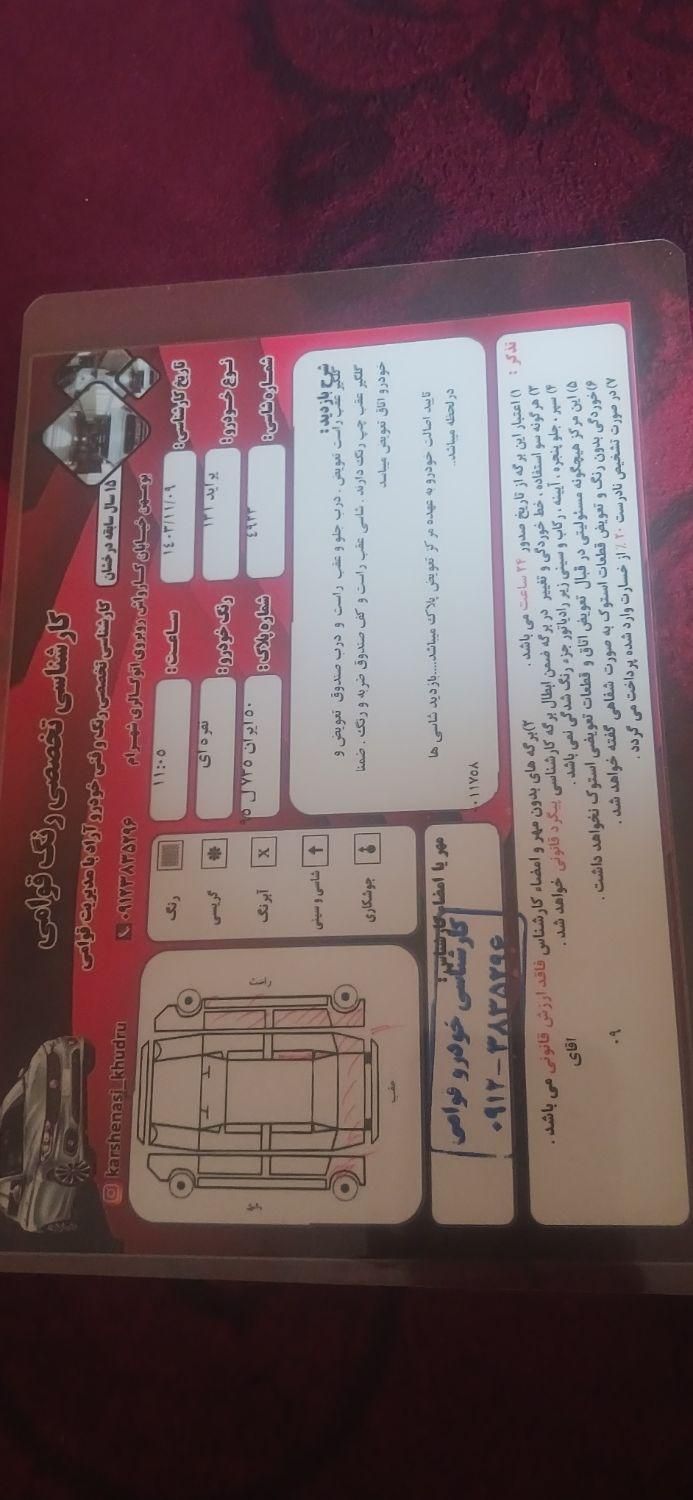 کارشناسی تخصصی رنگ قوامی
کارشناسی تخصصی رنگ و فنی خودرو آزاد با مدیریت قوامی
۱۵ سال سابقه درخشان
۰۹۱۲۳۸۳۵۲۹۶
karshenasi_khudru
تاریخ کارشناسی: ۱۴۰۳/۱۱/۰۹
ساعت: ۱۱:۰۵
نوع خودرو: پراید ۱۳۱
رنگ خودرو: نقره ای
شماره شاسی: ۴۹۲۳
شماره پلاک: ۵۰ ایران ۷۳۵ ل ۹۵
رنگ
گریسی
آبرنگ
X
شاسی و سینی
جوشکاری
عقب
شرح بازدید:
گلگیر عقب راست تعویض . درب جلو و عقب راست و درب صندوق تعویض و
گلگیر عقب چپ رنگ دارند . شاسی عقب راست و کف صندوق ضربه و رنگ . ضمنا
خودرو اتاق تعویض میباسد
تایید اصالت خودرو به عهده مرکز تعویض پلاک میباشد....بازدید شاسی ها
در لحظه میباشد..
۰۱۱۷۵۸
مهر یا امضاء کارشناس:
کارشناسی خودرو قوامی
۰۹۱۲-۳۸۳۵۲۹۶
تذکر :
۱) اعتبار این برگه از تاریخ صدور ۲۴ ساعت می باشد .
۲) برگه های بدون مهر و امضاء کارشناس فاقد ارزش قانونی می باشد .
۳) هرگونه سو استفاده ، خط خوردگی و تغییر در برگه ضمن ابطال برگه کارشناسی پیگرد قانونی خواهد شد .
۴) سپر ، جلو پنجره ، آیینه ، رکاب و سینی زیر رادیاتور جزء رنگ شدگی نمی باشد .
۵) این مرکز هیچگونه مسئولیتی در قبال تعویض اتاق و قطعات تعویضی استوک نخواهد داشت .
۶) خوردگی بدون رنگ و تعویض قطعات استوک به صورت شفاهی گفته خواهد شد .
۷) در صورت تشخیص نادرست ۲۰٪ از خسارت وارد شده پرداخت می گردد .
آقای
۰۹